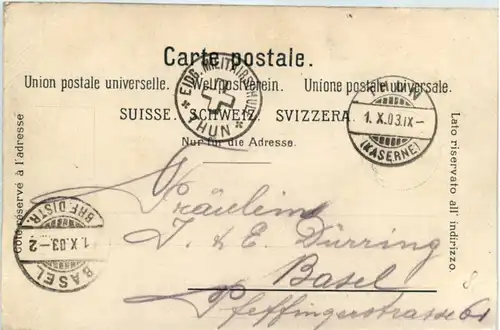 Carte postale.
Union postale universelle. Weltpostverein. Unione postale universale.
SUISSE. SCHWEIZ. SVIZZERA.
Nur für die Adresse.
Côté réservé à l'adresse
Lato riservato all' indirizzo.
EIDG. MILITAIRSCHULE
THUN
THUN
1. X. 03. IX –
(KASERNE)
BASEL
1. X. 03. – 2
BRF. DISTR.
Fräulein
J. & E. Dürring
Basel
Pfeffingerstrasse 61